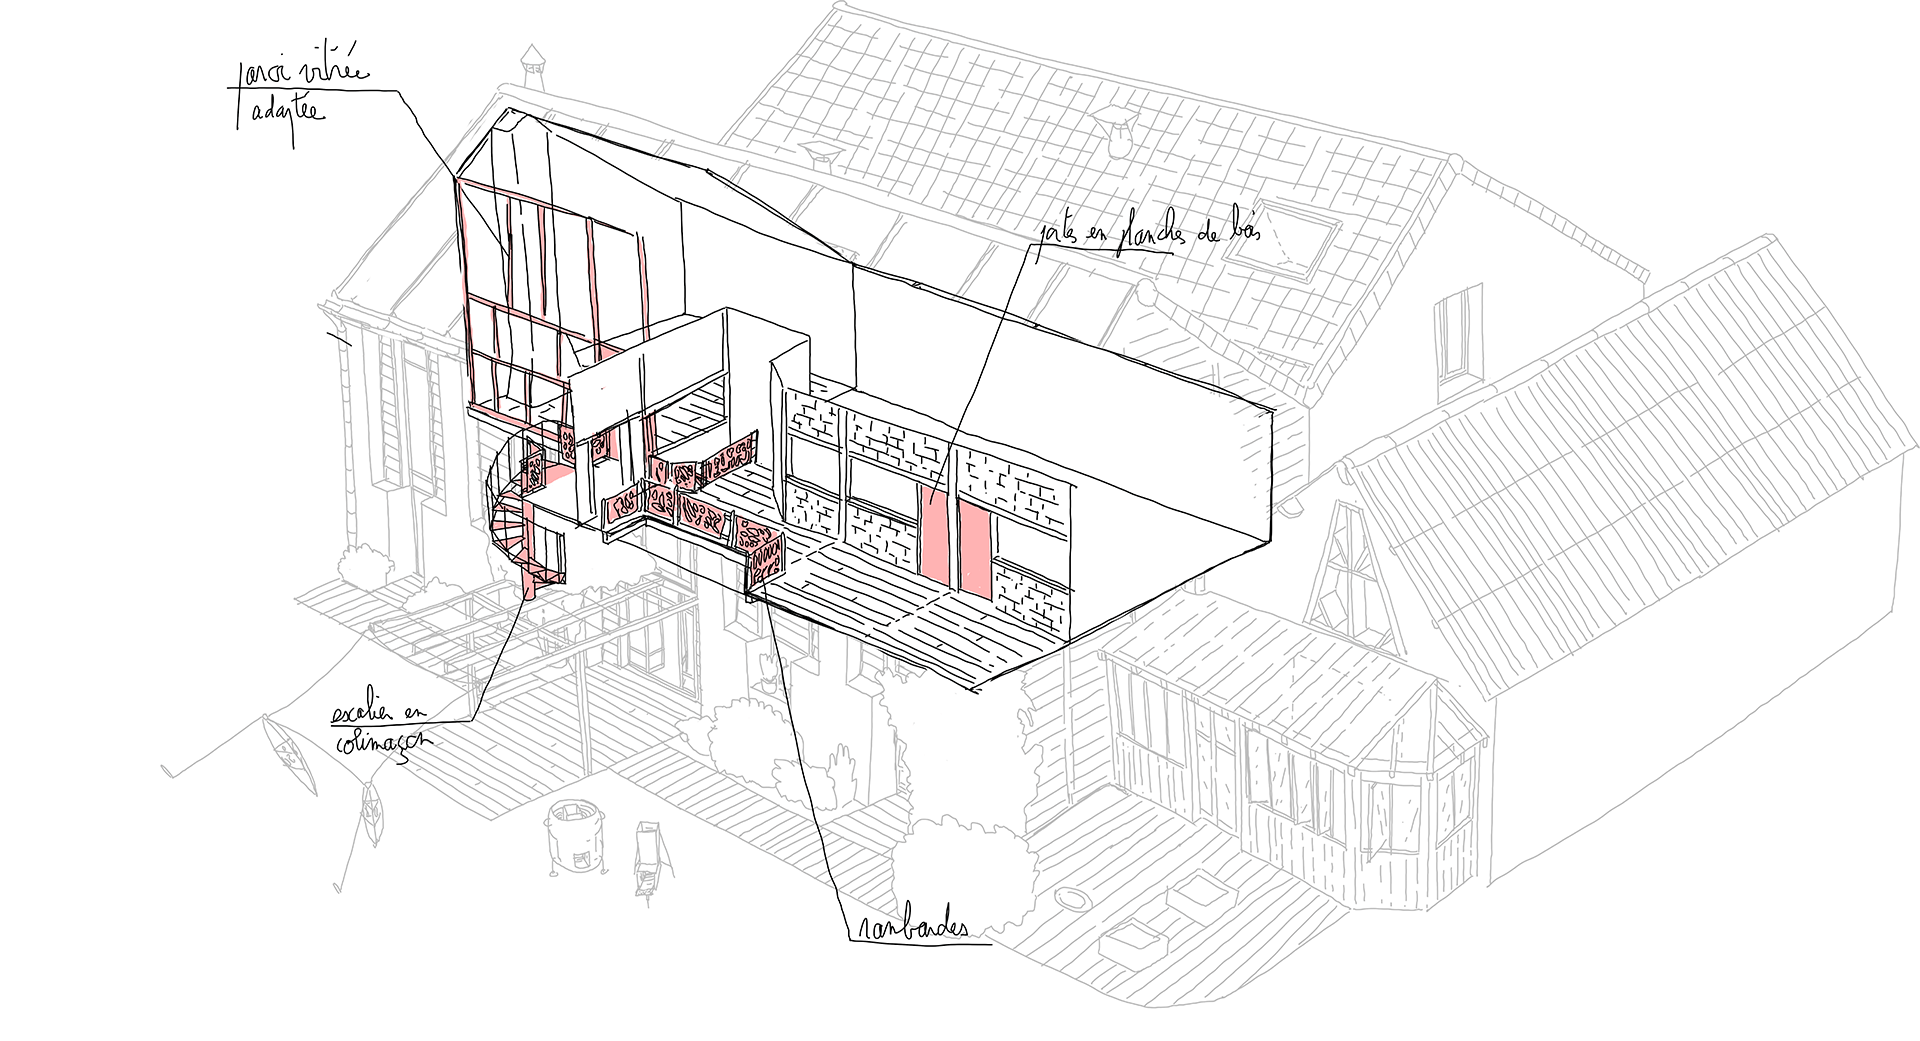 paroi vitrée
adaptée
portes en planches de bois
escalier en
colimaçon
rambardes